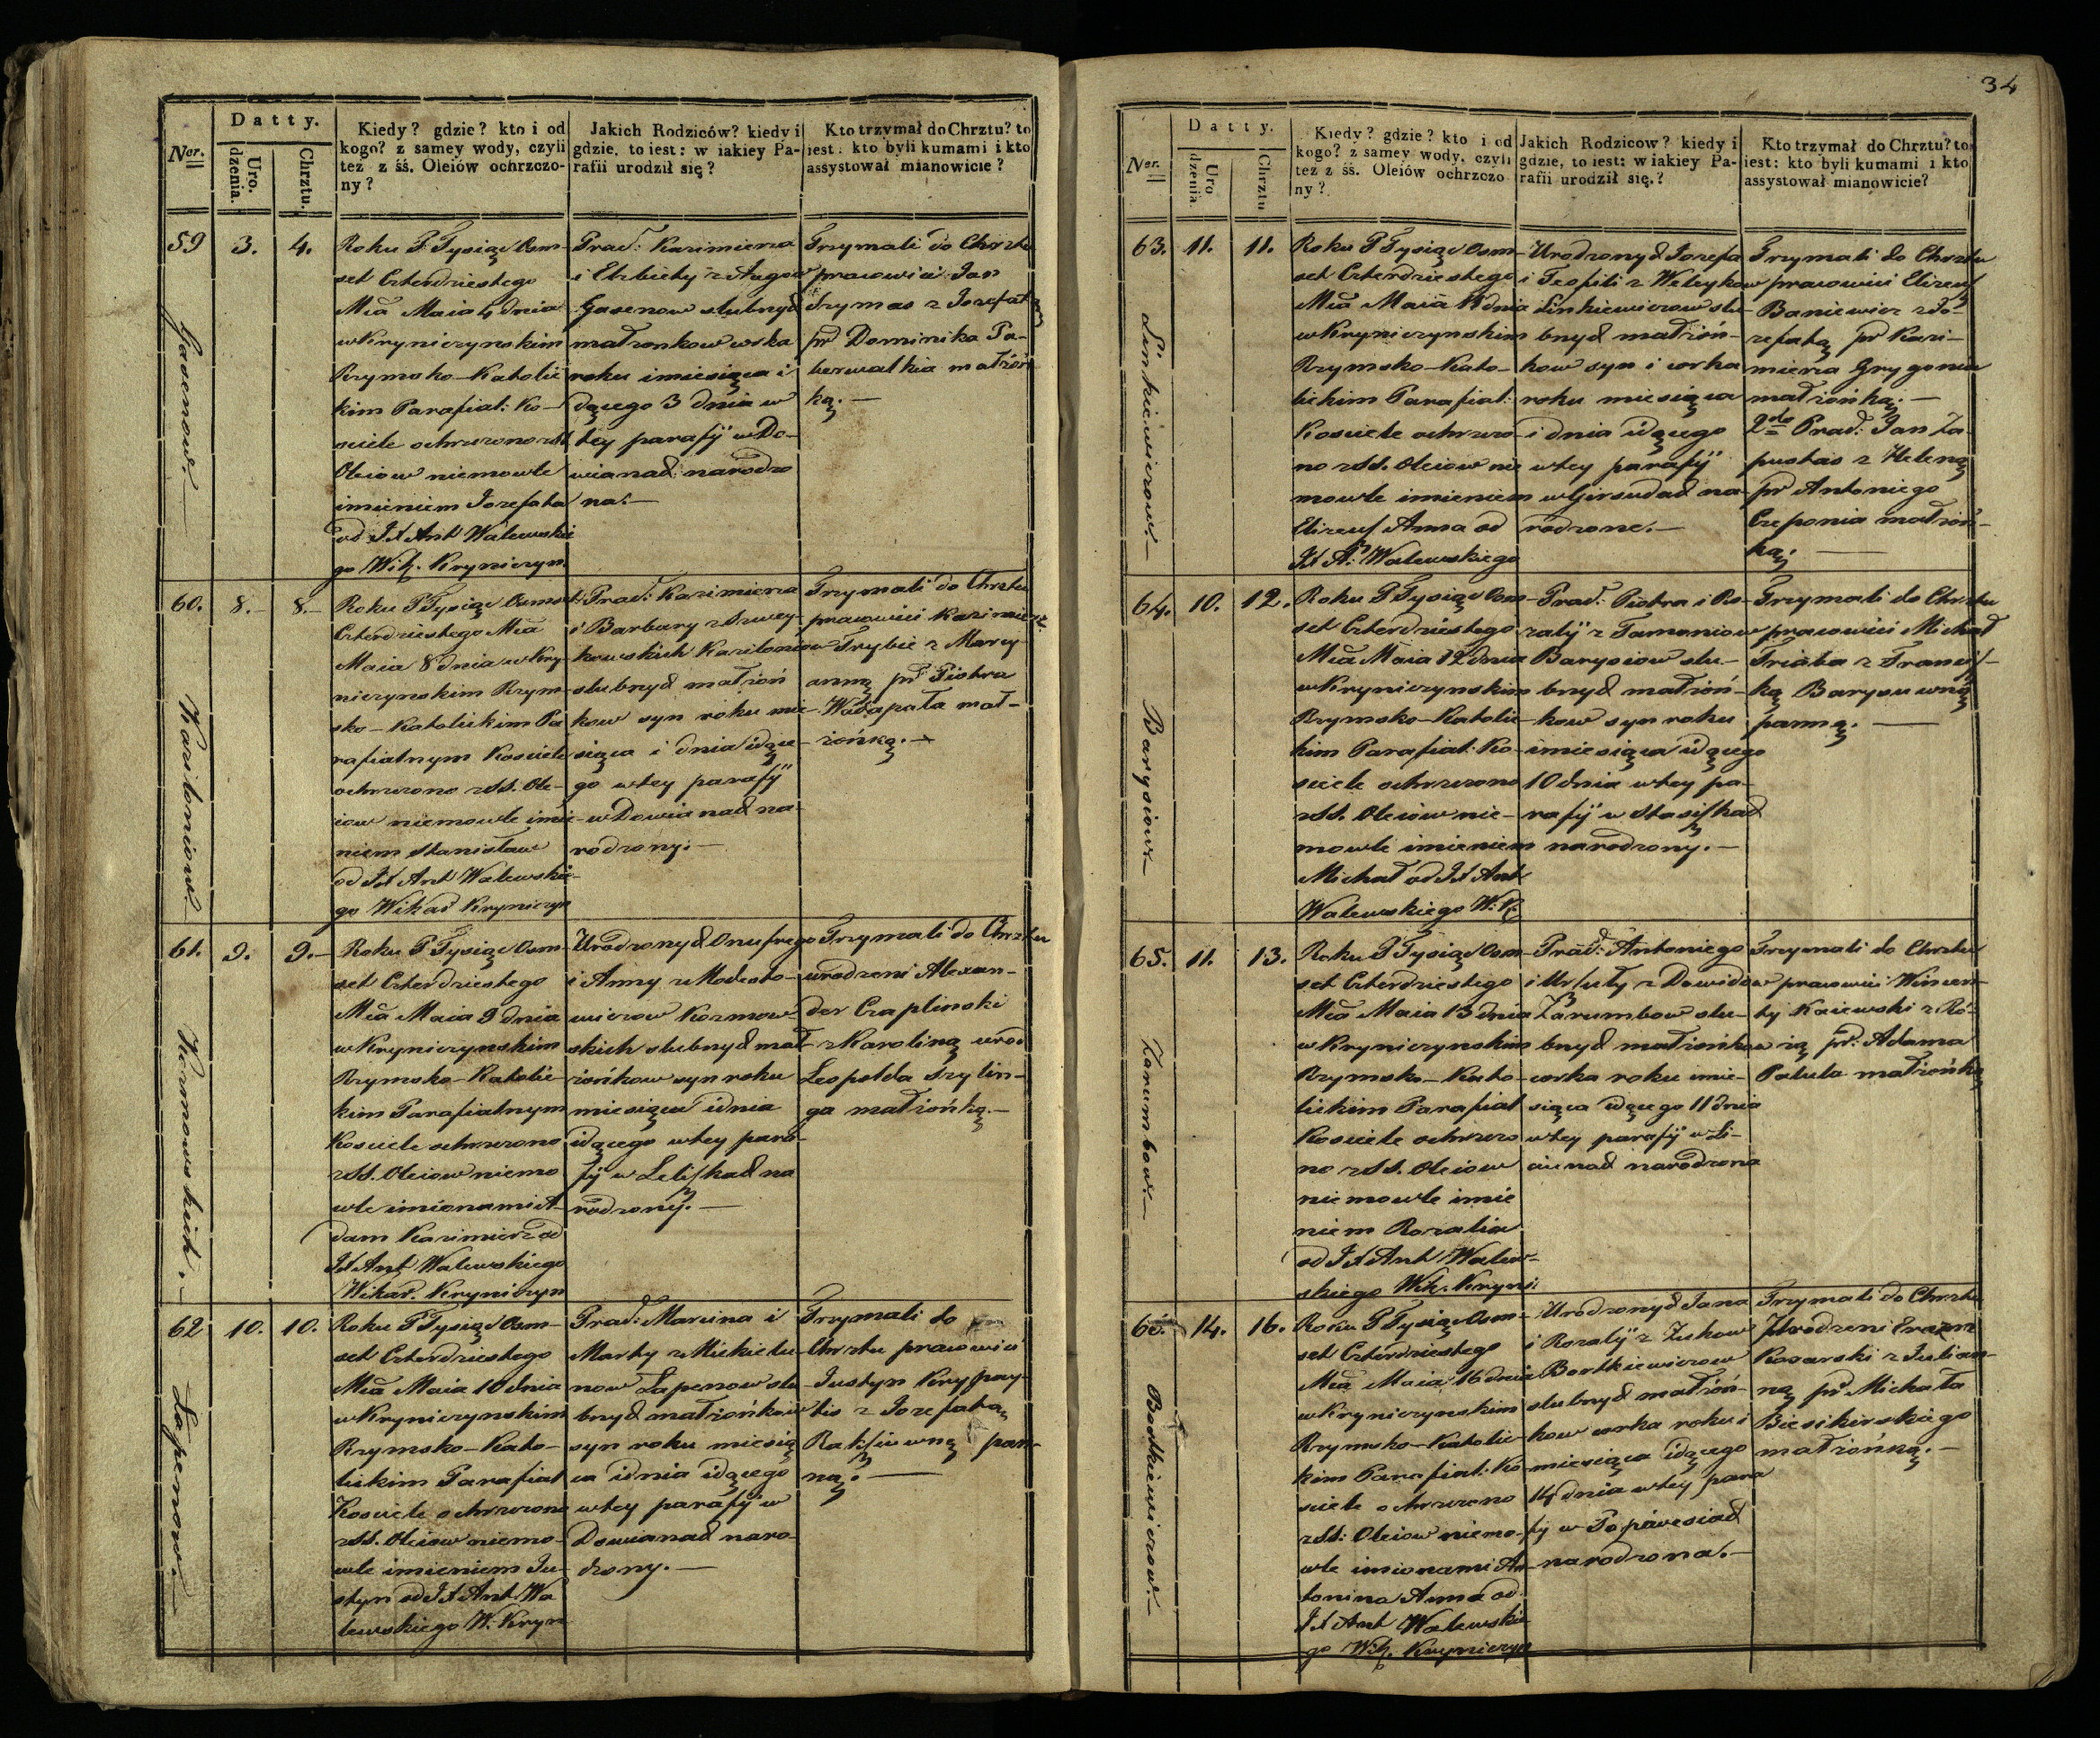 34
Datty.
Ner.
Uro.
dzenia.
Chrztu.
Kiedy? gdzie? kto i od
kogo? z samey wody, czyli
też z śś. Oleiów ochrzczo-
ny?
Jakich Rodziców? kiedy i
gdzie, to iest: w iakiey Pa-
rafii urodził się?
Kto trzymał do Chrztu? to
iest: kto byli kumami i kto
assystował mianowicie?
59
3.
4.
Gasenow.
Roku P. Tysiąc Osm-
set Czterdziestego
Mca Maia 4 dnia
w Kryniczynskim
Rzymsko-Katolic
kim Parafial: Ko-
sciele ochrzczono z SS.
Oleiow niemowle
imieniem Jozefata
od JX Ant Walewskie
go Wik. Kryniczyn
Prac: Kazimierza
i Elzbiety z
Gasenow slubnych
małzonkow corka
roku i miesiąca i
dącego 3 dnia w
tey parafij w Do-
wianach narodzo
na.—
Trzymali do Chrztu
pracowici Jan
Szymas z Jozefatą
pr Dominika Pa-
berwalkia małżon
ką.—
60.
8.
8.
Kaziloniow.
Roku P Tysiąc Osmset
Czterdziestego Mca
Maia 8 dnia w Kry-
niczynskim Rzym-
sko-Katolickim Pa
rafialnym Kosciele
ochrzczono z SS. Ole-
iow niemowle imie-
niem Stanisław
od JX Ant Walewskie-
go Wikar Kryniczyn
Prac: Kazimierza
i Barbary z Szwey-
kowskich Kaziloniow
slubnych małżon
kow syn roku mie
siąca i dnia idące
go w tey parafij
w Dowianach na
rodzony.—
Trzymali do Chrztu
pracowici Kazimierz
Trybie z Mary-
anną pr Piotra
Wadapała mał-
żonką.—
61.
9.
9.
Kozmowskich.
Roku P Tysiąc Osm-
set Czterdziestego
Mca Maia 9 dnia
w Kryniczynskim
Rzymsko-Katolic-
kim Parafialnym
Kosciele ochrzczono
z SS. Oleiow niemo
wle imionami A-
dam Kazimierz od
JX Ant Walewskiego
Wikar. Kryniczyn
Urodzonych Onufrego
i Anny z Modesto-
wiczow Kozmow-
skich slubnych mał-
żonkow syn roku
miesiąca i dnia
idącego w tey para-
fij w Leliszkach na
rodzony.—
Trzymali do Chrztu
urodzeni Alexan-
der Czaplinski
z Karoliną urod
Leopolda Szylin-
ga małżonką.—
62
10.
10.
Łapenow.
Roku P Tysiąc Osm-
set Czterdziestego
Mca Maia 10 dnia
w Krynicynskim
Rzymsko-Kato-
lickim Parafial
Kosciele ochrzczono
z SS. Oleiow niemo-
wle imieniem Ju-
styn od JX Ant Wa
lewskiego W. Kryn
Prac: Marcina i
Marty z Mickielu-
now Łapenow slu
bnych małżonkow
syn roku miesią
ca i dnia idącego
w tey parafij w
Dowianach naro-
dzony.—
Trzymali do
Chrztu pracowici
Justyn Krypay-
tis z Jozefatą
Rakszuwną pan-
ną.—
Datty.
Ner.
Uro
dzenia.
Chrztu
Kiedy? gdzie? kto i od
kogo? z samey wody, czyli
też z śś. Oleiów ochrzczo
ny?
Jakich Rodziców? kiedy i
gdzie, to iest: w iakiey Pa-
rafii urodził się.?
Kto trzymał do Chrztu? to
iest: kto byli kumami i kto
assystował mianowicie?
63.
11.
11.
Linkiewiczow.
Roku P Tysiąc Osm-
set Czterdziestego
Mca Maia 11 dnia
w Krynicynskim
Rzymsko-Kato-
lickim Parafial:
Kosciele ochrzczo-
no z SS. Oleiow nie
mowle imieniem
Elizeusz Anna od
JX A: Walewskiego
Urodzonych Jozefa
i Teofili z Weleykow
Linkiewiczow slu-
bnych małżon-
kow syn i corka
roku miesiąca
i dnia idącego
w tey parafij
w Girsudach na
rodzone.—
Trzymali do Chrztu
pracowici Elizeusz
Baniewicz z Jo-
zefatą pr Kazi-
mierza Grygonia
małżonką.—
2do Prac: Jan Za
pustas z Heleną
pr Antoniego
Czeponia małżon-
ką.—
64.
10.
12.
Barysiow.
Roku P Tysiąc Osm-
set Czterdziestego
Mca Maia 12 dnia
w Krynicynskim
Rzymsko-Katolic-
kim Parafial: Ko-
sciele ochrzczono
z SS. Oleiow nie-
mowle imieniem
Michał od JX Ant
Walewskiego W. K.
Prac: Piotra i Ro-
zalij z Tamoniow
Barysiow slu-
bnych małżon-
kow syn roku
i miesiąca idącego
10 dnia w tey pa-
rafij w Stasiszkach
narodzony.—
Trzymali do Chrztu
pracowici Michał
Triaba z Francisz-
ką Barysuwną
panną.—
65.
11.
13.
Zarumbow.
Roku P Tysiąc Osm-
set Czterdziestego
Mca Maia 13 dnia
w Krynicynskim
Rzymsko-Kato-
lickim Parafial
Kosciele ochrzczo
no z SS. Oleiow
niemowle imie
niem Rozalia
od JX Ant Walew-
skiego Wik. Kryni:
Prac: Antoniego
i Urszuły z Dowidow
Zarumbow slu-
bnych małżonkow
corka roku i mie-
siąca idącego 11 dnia
w tey parafij w Li-
ciunach narodzona
Trzymali do Chrztu
pracowici Wincen-
ty Kaiewski z Ró-
żą pr. Adama
Patula małżonką
66.
14.
16.
Bortkiewiczow.
Roku P Tysiąc Osm-
set Czterdziestego
Mca Maia 16 dnia
w Krynicynskim
Rzymsko-Katolic-
kim Parafial: Ko-
sciele ochrzczono
z SS: Oleiow niemo-
wle imionami An-
tonina Anna od
JX Ant Walewskie
go Wik. Krynicyn
Urodzonych Jana
i Rozalij z Zukow
Bortkiewiczow
slubnych małżon-
kow corka roku i
miesiąca idącego
14 dnia w tey para
fij w Popiwesiach
narodzona.—
Trzymali do Chrztu
Urodzeni Erazm
Kosarski z Julian-
ną pr Michała
Biesikirskiego
małżonką.—